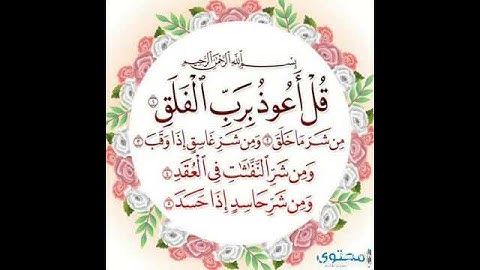 بِسْمِ ٱللَّهِ ٱلرَّحْمَٰنِ ٱلرَّحِيمِ
قُلْ أَعُوذُ بِرَبِّ ٱلْفَلَقِ ١
مِن شَرِّ مَا خَلَقَ ٢ وَمِن شَرِّ غَاسِقٍ إِذَا وَقَبَ ٣
وَمِن شَرِّ ٱلنَّفَّٰثَٰتِ فِى ٱلْعُقَدِ ٤
وَمِن شَرِّ حَاسِدٍ إِذَا حَسَدَ ٥
محتوى